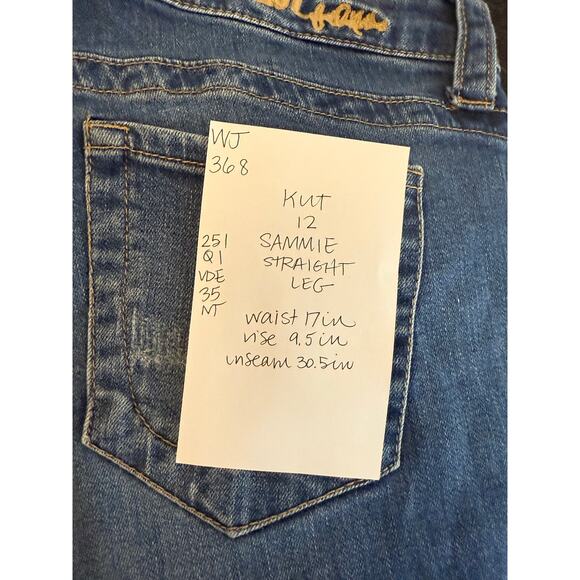 WJ
368
KUT
12
SAMMIE
STRAIGHT
LEG
251
Q1
VDE
35
NT
waist 17in
rise 9.5in
inseam 30.5in